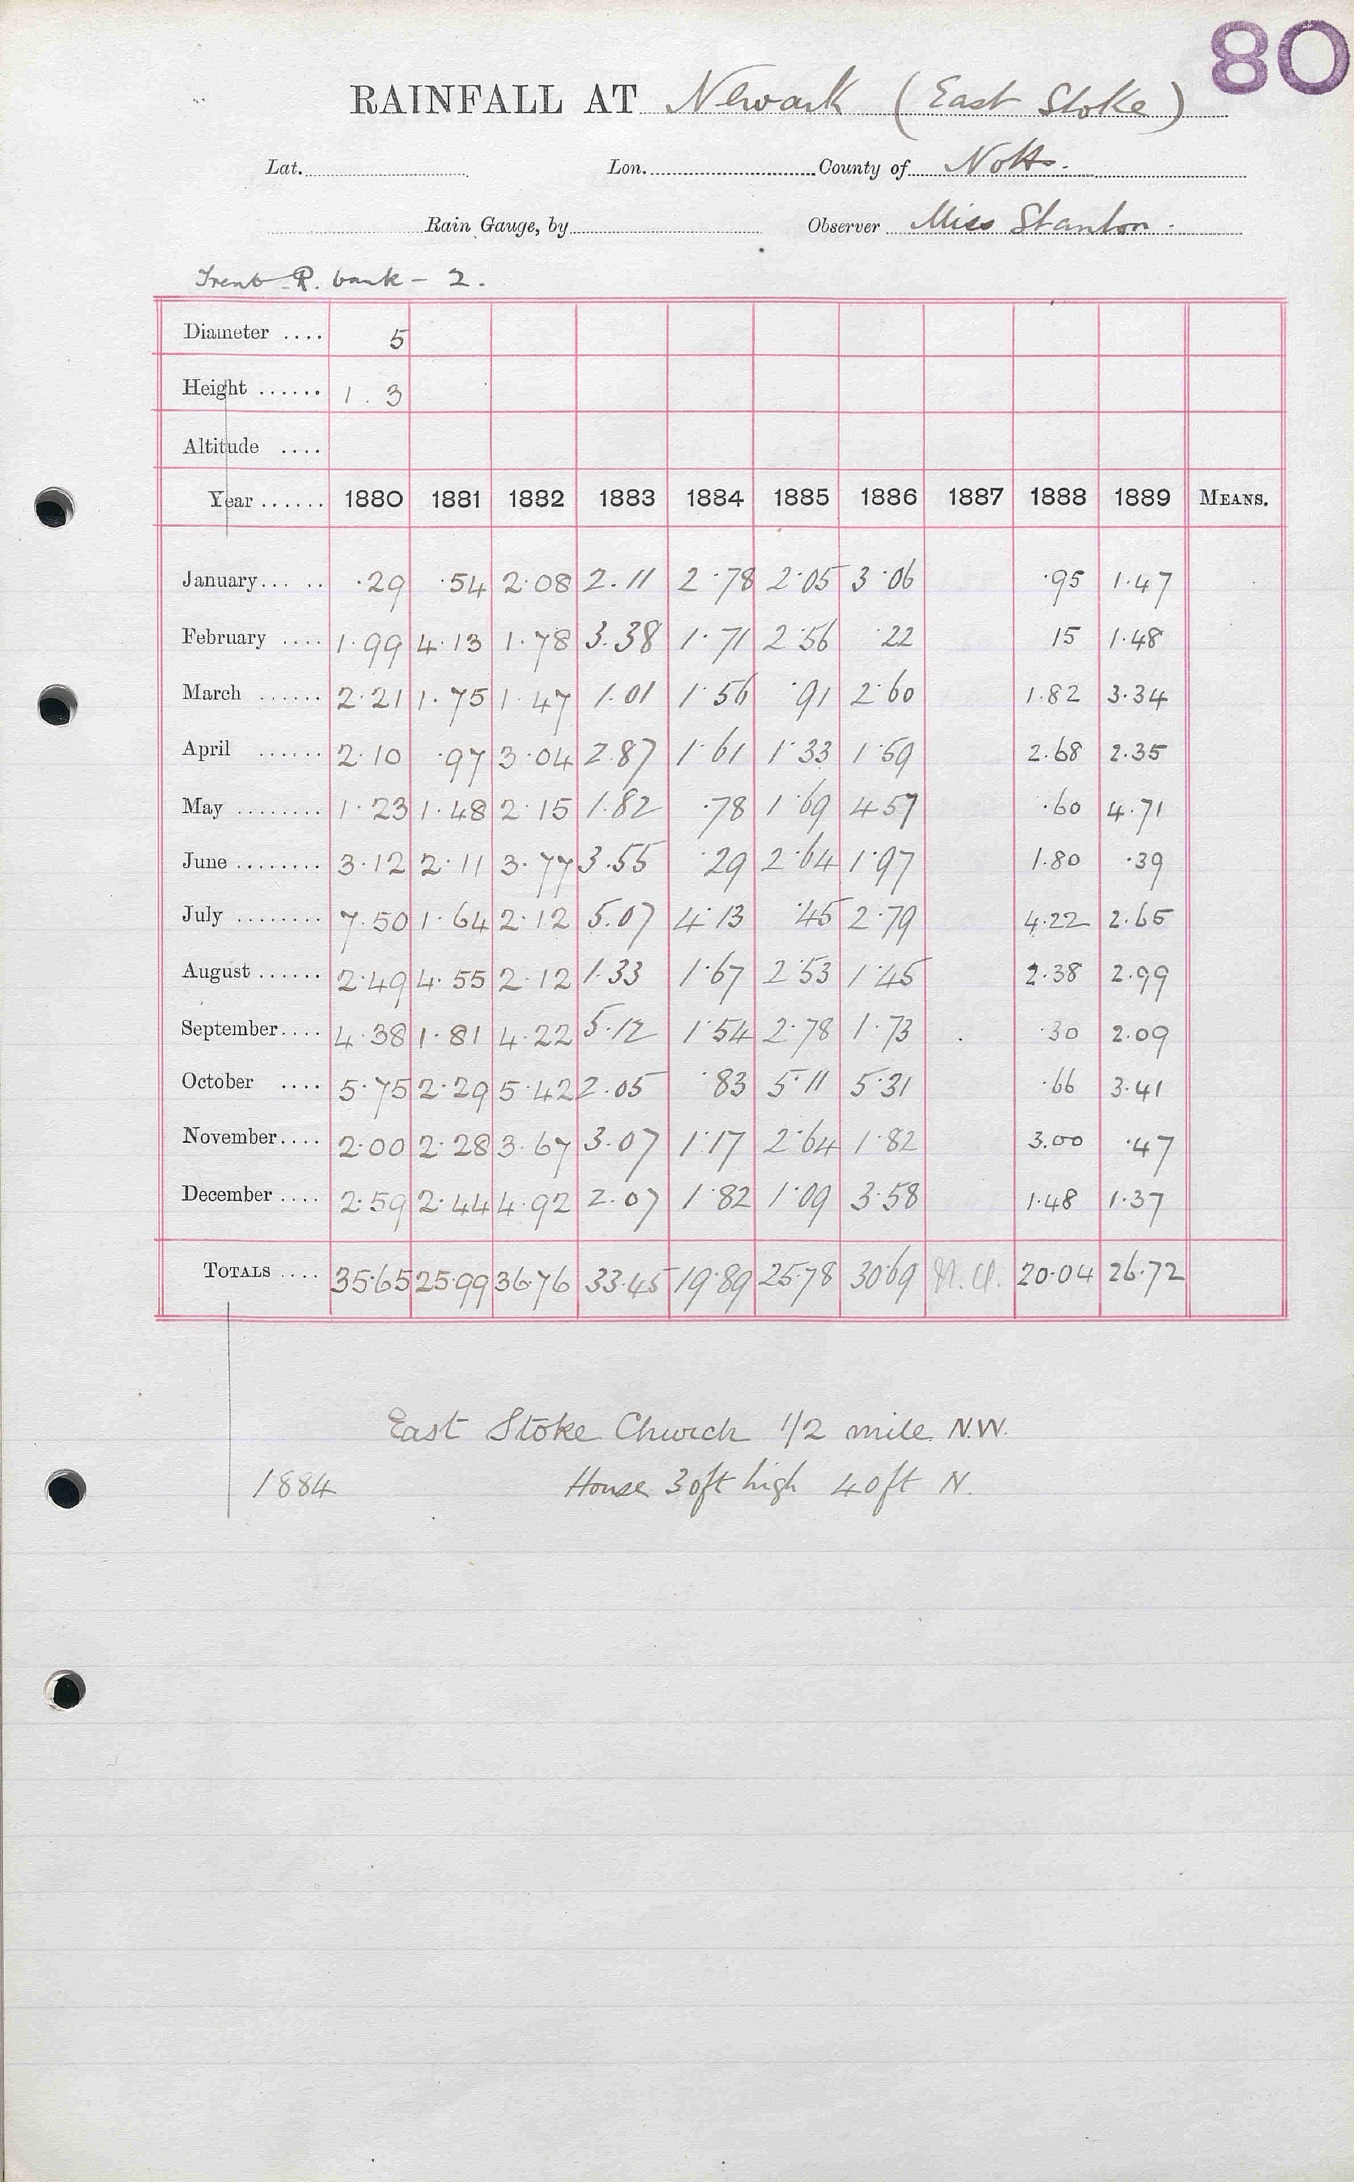 80
RAINFALL AT Newark (East Stoke)
Lat. Lon. County of Notts.
Rain Gauge, by Observer Miss Stanton.
Trent R. bank - 2.
Diameter .... 5
Height ...... 1. 3
Altitude ....
Year ...... 1880 1881 1882 1883 1884 1885 1886 1887 1888 1889 MEANS.
January... .. ·29 ·54 2·08 2.11 2·78 2·05 3·06 ·95 1·47
February .... 1·99 4·13 1·78 3.38 1·71 2·56 ·22 15 1·48
March ...... 2·21 1·75 1·47 1.01 1·56 ·91 2·60 1·82 3·34
April ...... 2·10 ·97 3·04 2.87 1·61 1·33 1·59 2·68 2·35
May ........ 1·23 1·48 2·15 1.82 ·78 1·69 4·57 ·60 4·71
June ........ 3·12 2·11 3·77 3.55 ·29 2·64 1·97 1·80 ·39
July ........ 7·50 1·64 2·12 5.07 4·13 ·45 2·79 4·22 2·65
August ...... 2·49 4·55 2·12 1.33 1·67 2·53 1·45 2·38 2·99
September.... 4·38 1·81 4·22 5.12 1·54 2·78 1·73 ·30 2·09
October .... 5·75 2·29 5·42 2.05 ·83 5·11 5·31 ·66 3·41
November.... 2·00 2·28 3·67 3.07 1·17 2·64 1·82 3.00 ·47
December .... 2·59 2·44 4·92 2.07 1·82 1·09 3·58 1·48 1·37
TOTALS .... 35·65 25·99 36·76 33·45 19·89 25·78 30·69 20·04 26·72
East Stoke Church 1/2 mile N.W.
1884 House 30ft high 40ft N.